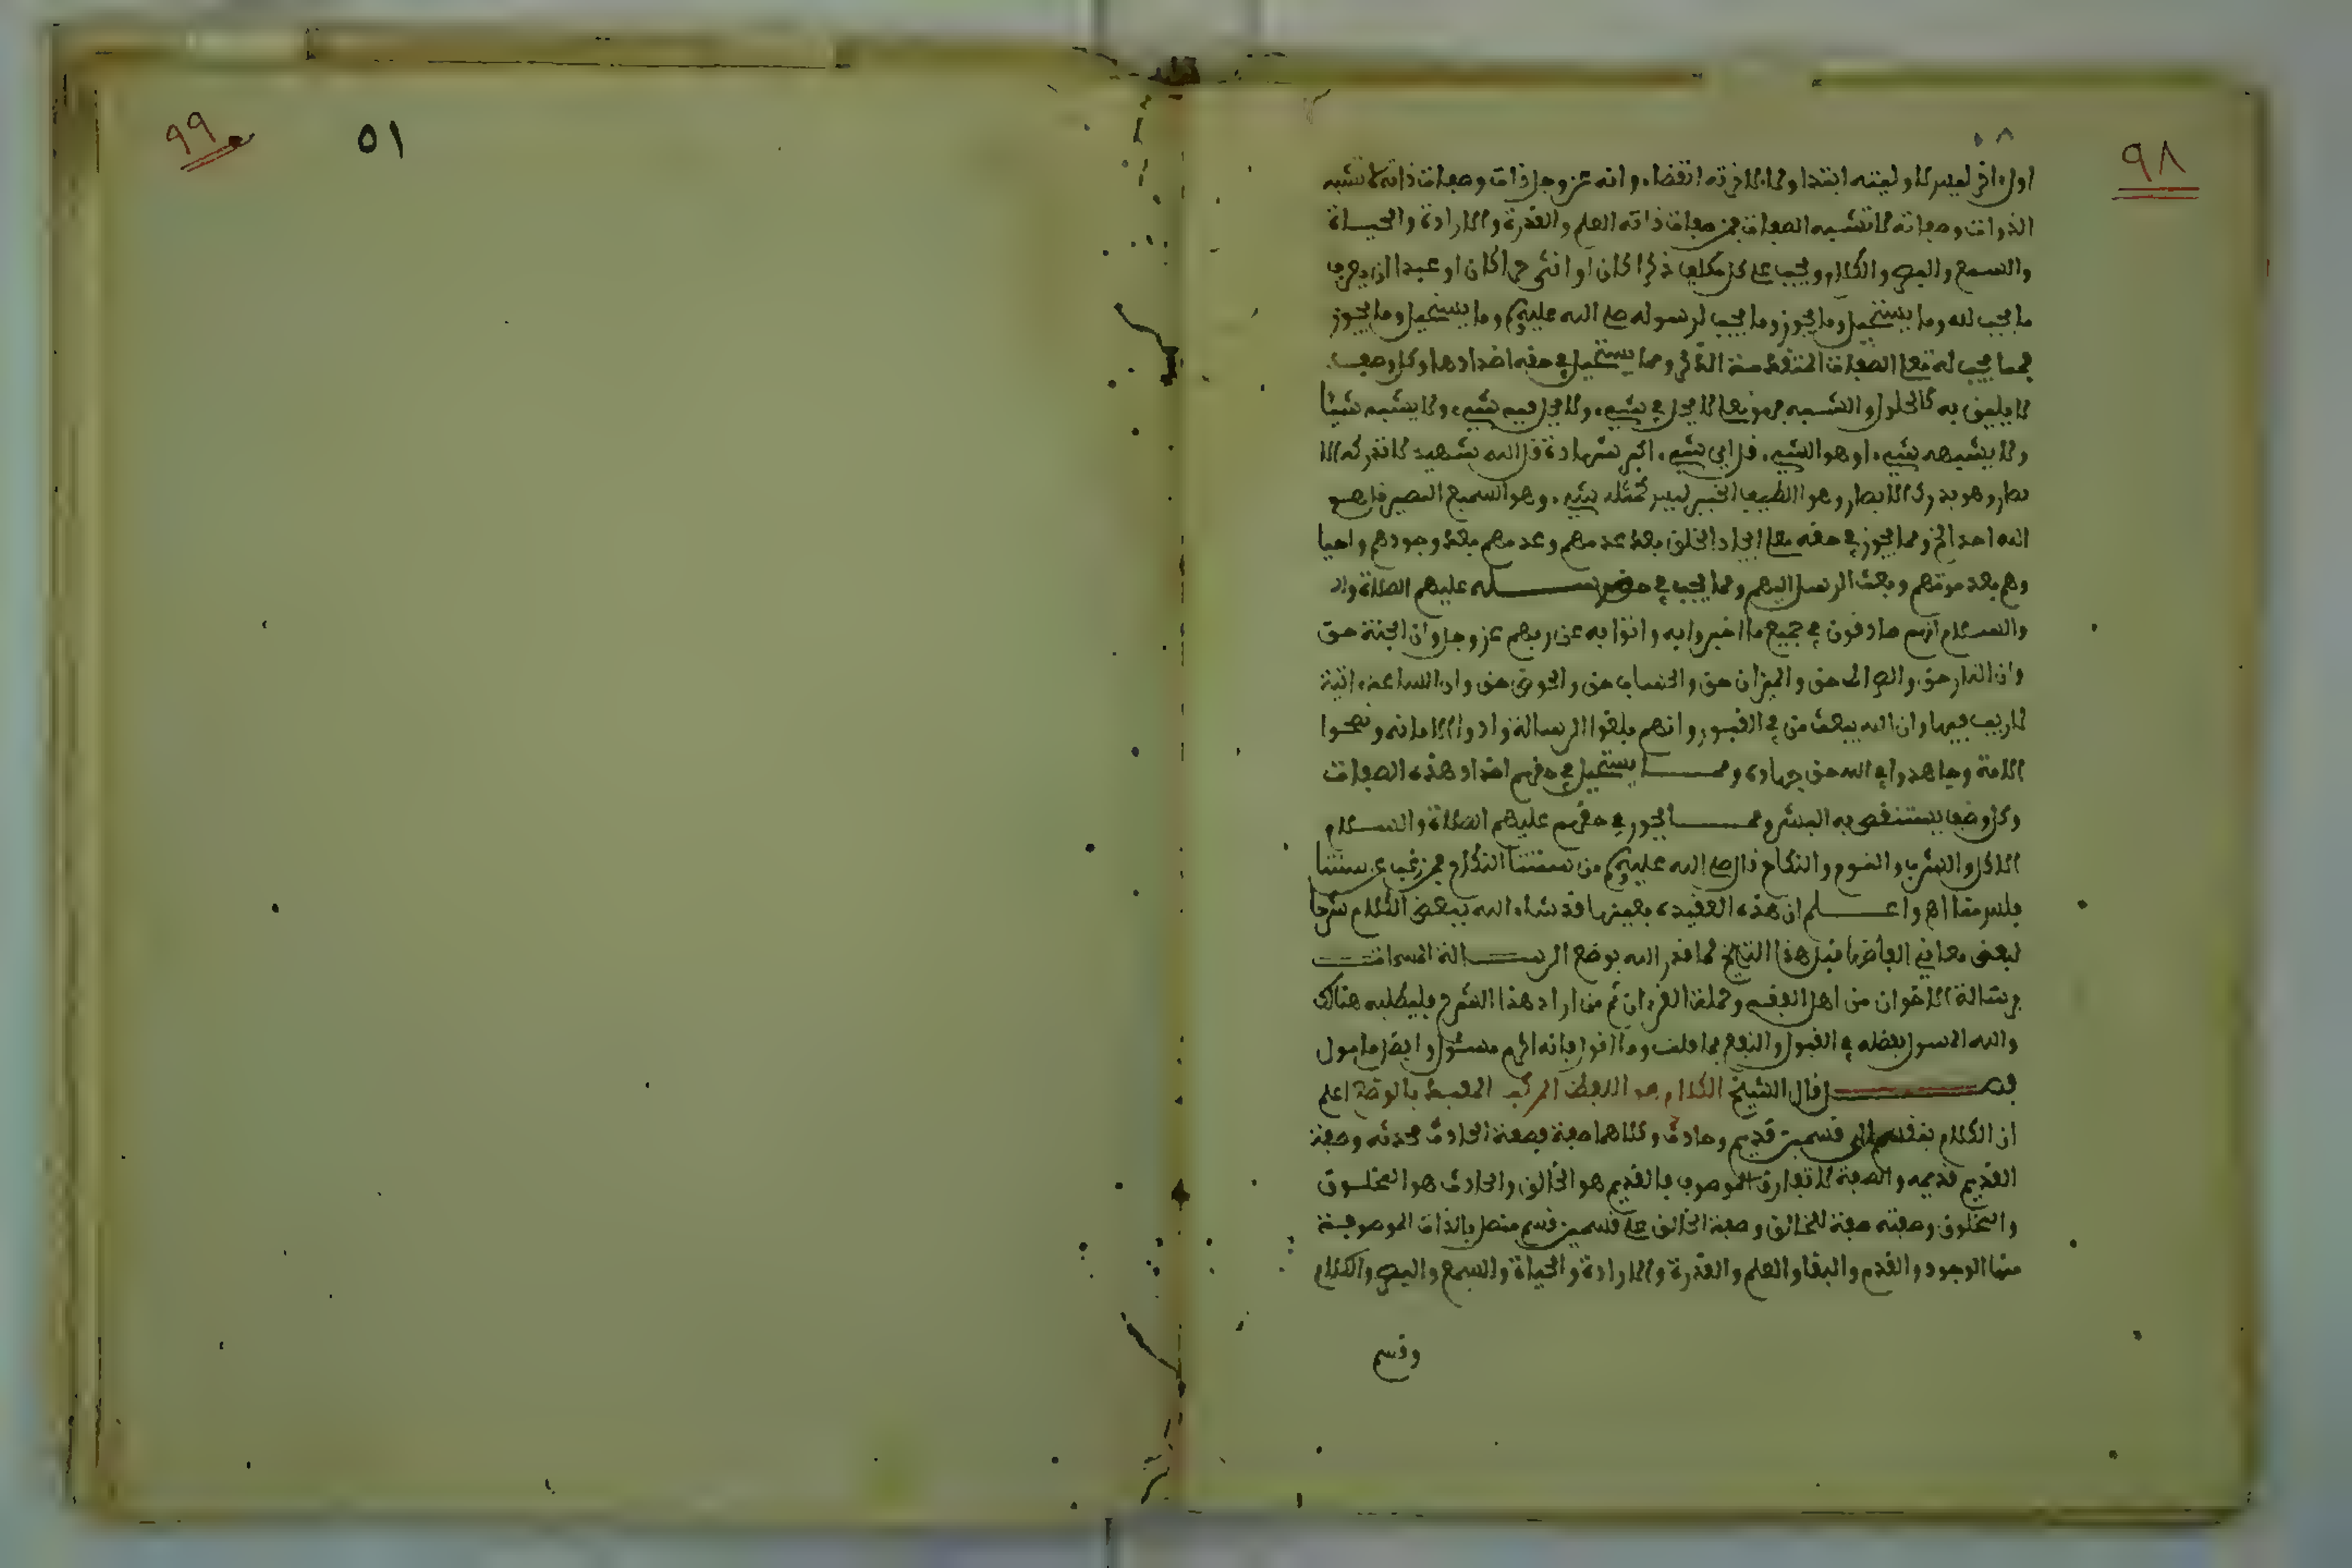 ٩٨
اول اخر ليس لاوليته ابتدا ولا لاخريته انقضاء وانه عز وجل ذات وصفات ذاته لا تشبه
الذوات وصفاته لا تشبه الصفات فمن صفات ذاته العلم والقدرة والارادة والحيــاة
والسمع والبصر والكلام ويجب على كل مكلف ذكرا كان او انثى حرا كان او عبدا ان يعرف
ما يجب لله وما يستحيل وما يجوز وما يجب لرسوله صلى الله عليه وسلم وما يستحيل وما يجوز
فمما يجب له تعلى الصفات المتقدمة الذكر ومما يستحيل في حقه اضدادها وكل وصف
لا يليق به كالحلول والتشبيه فهو تعلى لا يحل في شيء ولا يحل فيه شيء ولا يشبه شيئا
ولا يشبهه شيء او هو الشيء قل اي شيء اكبر شهادة قل الله شهيد لا تدركه الا
بصار وهو يدرك الابصار وهو اللطيف الخبير ليس كمثله شيء وهو السميع البصير قل هــو
الله احد الخ ومما يجوز في حقه تعلى ايجاد الخلق بعد عدمهم وعدمهم بعد وجودهم واحيا
وهم بعد موتهم وبعث الرسل اليهم ومما يجب في حق رســـله عليهم الصلاة وال
والســلام انهم صادقون في جميع ما اخبروا به واتوا به عن ربهم عز وجل وان الجنة حق
وان النار حق والصراط حق والميزان حق والحساب حق والحوض حق وان الساعة ءاتية
لا ريب فيها وان الله يبعث من في القبور وانهم بلغوا الرسالة وادوا الامانه ونصحوا
الامة وجاهدوا في الله حق جهاده وممـــا يستحيل في حقهم اضداد هذه الصفات
وكل وصف يستنقص به البشر وممـــا يجوز في حقهم عليهم الصلاة والســـلام
الاكل والشرب والنوم والنكاح قال صلى الله عليه وسلم من سنتنا النكاح فمن رغب عن سنتنا
فليس منا اه واعـــلم ان هذه العقيده بعينها قد شاء الله ببعض الكلام شرحا
لبعض معاني الفاظها قبل هذا التاريخ لما قدر الله بوضع الرســـالة المسمات
برسالة الاخوان من اهل الفقه وحملة القرءان ثم من اراد هذا الشرح فليطلبه هناك
والله المسول بفضله في القبول والنفع بما قلت وما اقول فانه اكرم مسئول وافضل مامول
فصـــل قال الشيخ الكلام هو اللفظ المركب المفيد بالوضع اعلم
ان الكلام ينقسم الى قسمين قديم وحادث وكلاهما صفة فصفة الحادث محدثه وصفة
القديم قديمه والصفة لا تفارق الموصوف فالقديم هو الخالق والحادث هو المخلــوق
والمخلوق وصفته صفة للخالق وصفة الخالق على قسمين قسم متصل بالذات الموصوفــة
منها الوجود والقدم والبقا والعلم والقدرة والارادة والحياة والسمع والبصر والكلام
وقسم
٥١
٩٩